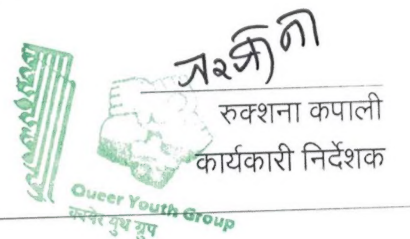 रुक्शना कपाली
कार्यकारी निर्देशक
Queer Youth Group
क्वयेर युथ ग्रुप